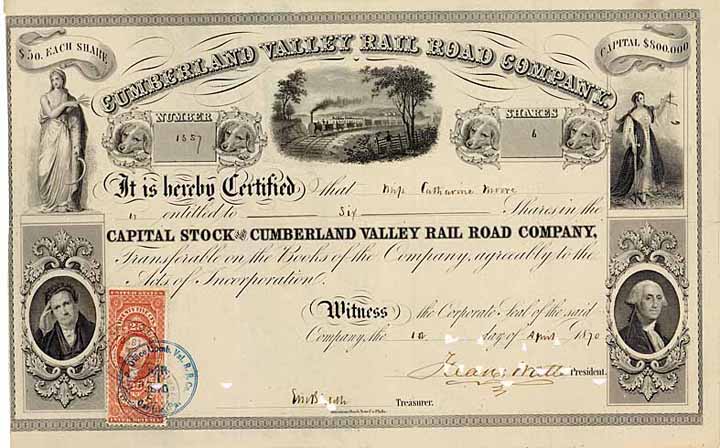 $50. EACH SHARE.
CAPITAL $800.000
CUMBERLAND VALLEY RAIL ROAD COMPANY.
NUMBER
1557
SHARES
6
It is hereby Certified that Miss Catharine Moore
is entitled to Six Shares in the
CAPITAL STOCK OF THE CUMBERLAND VALLEY RAIL ROAD COMPANY,
Transferable on the Books of the Company, agreeably to the
Acts of Incorporation.
Witness the Corporate Seal of the said
Company, the day of April 1870
President.
Treasurer.
American Bank Note Co. Phila.
UNITED STATES
25
INTER. REVENUE
Office Cumb. Val. R.R. Co.
APR